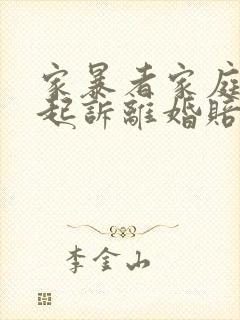 家暴者家庭
起訴離婚賠
李金山